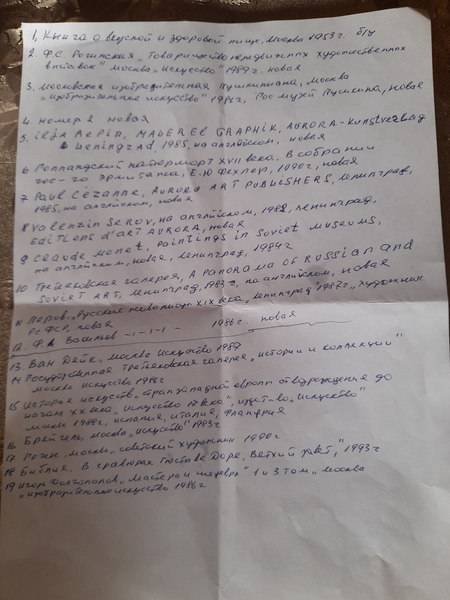 1, Книга о вкусной и здоровой пище. Москва 1953г. б/у
2. Ф.С. Рогинская „Товарищество передвижных художественных
выставок" москва „искусство" 1989г. новая
3. московская изобразительная Пушкиниана, москва
„изобразительное искусство" 1986г, Гос музей Пушкина, новая
4. номер 2 новая
5. ilja Repin, MALEREI GRAPHIK, AURORA-Kunstverlag
Leningrad, 1985, на английском, новая
6 Голландский натюрморт XVII века. В собрании
гос-го эрмитажа, Е.Ю Фехнер, 1990г, новая
7 Paul Cezanne, AURORA ART PUBLISHERS, ленинград,
1985, на английском, новая
8 Valentin Serov, на английском, 1982, ленинград,
Editions d'ART AURORA, новая
9 Claude Monet, Paintings in Soviet museums,
на английском, новая, ленинград, 1984г
10 Третьяковская галерея, A Panorama of Russian and
Soviet ART, ленинград, 1983г, на английском, новая
11 Перов „Русские живописцы XIX века, ленинград" 1987г „художник
РСФСР, новая
12 Ф.А Васильев -ı-ı-ı- 1986г. новая
13. Ван Дейк, москва искусство 1987
14 Государственная третьяковская галерея „истории и коллекции"
москва искусство 1986г
15 История искусств „стран западной европы от возрождения до
начала XX века, искусство 17 века", издат-во „искусство"
москва 1988г, испания, италия, Фландрия
16 Брейгель, москва „искусство" 1983г
17 москва „советский художник 1990г
18 Библия. В гравюрах Гюстава Доре, Ветхий завет, 1993г
19 игорь Долгополов „Мастера и шедевры" 1 и 3 том „москва
„изобразительное искусство 1986г